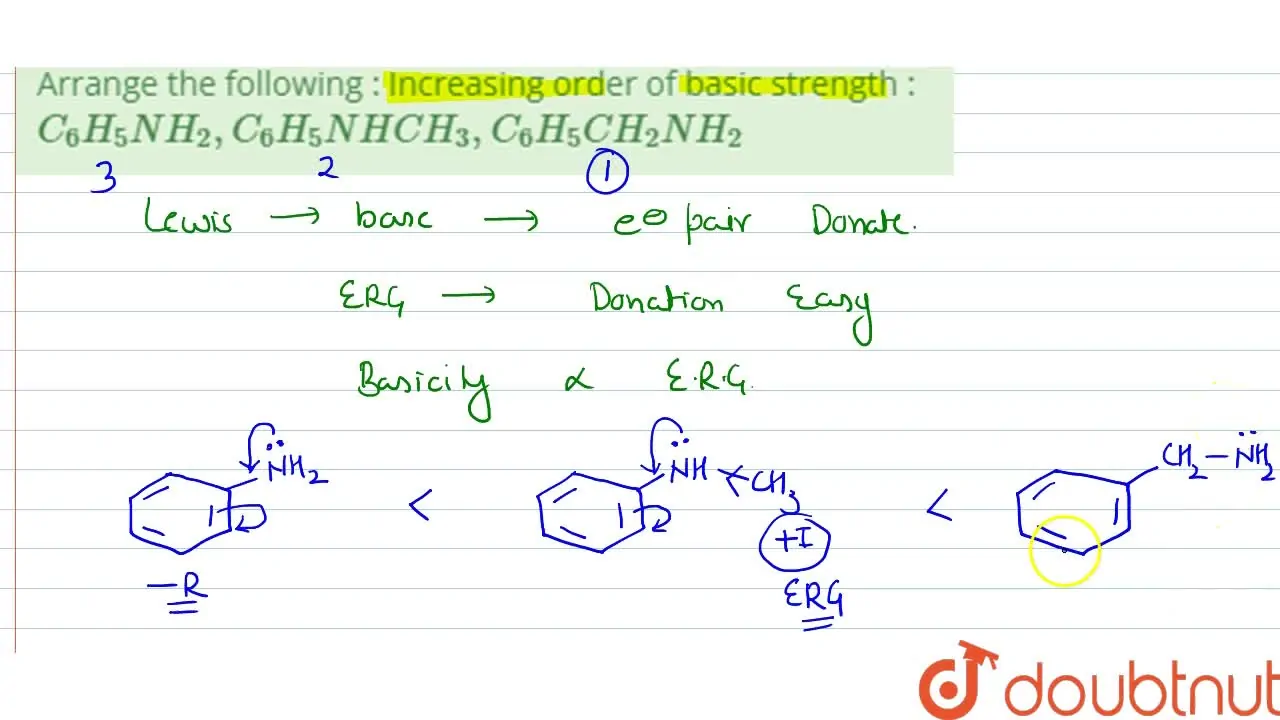 Arrange the following : Increasing order of basic strength :
C₆H₅NH₂, C₆H₅NHCH₃, C₆H₅CH₂NH₂
3 2 1
Lewis → base → e⊖ pair Donate.
ERG → Donation Easy
Basicity ∝ E.R.G.
NH₂ < NH CH₃ < CH₂–NH₂
+I
–R ERG
doubtnut